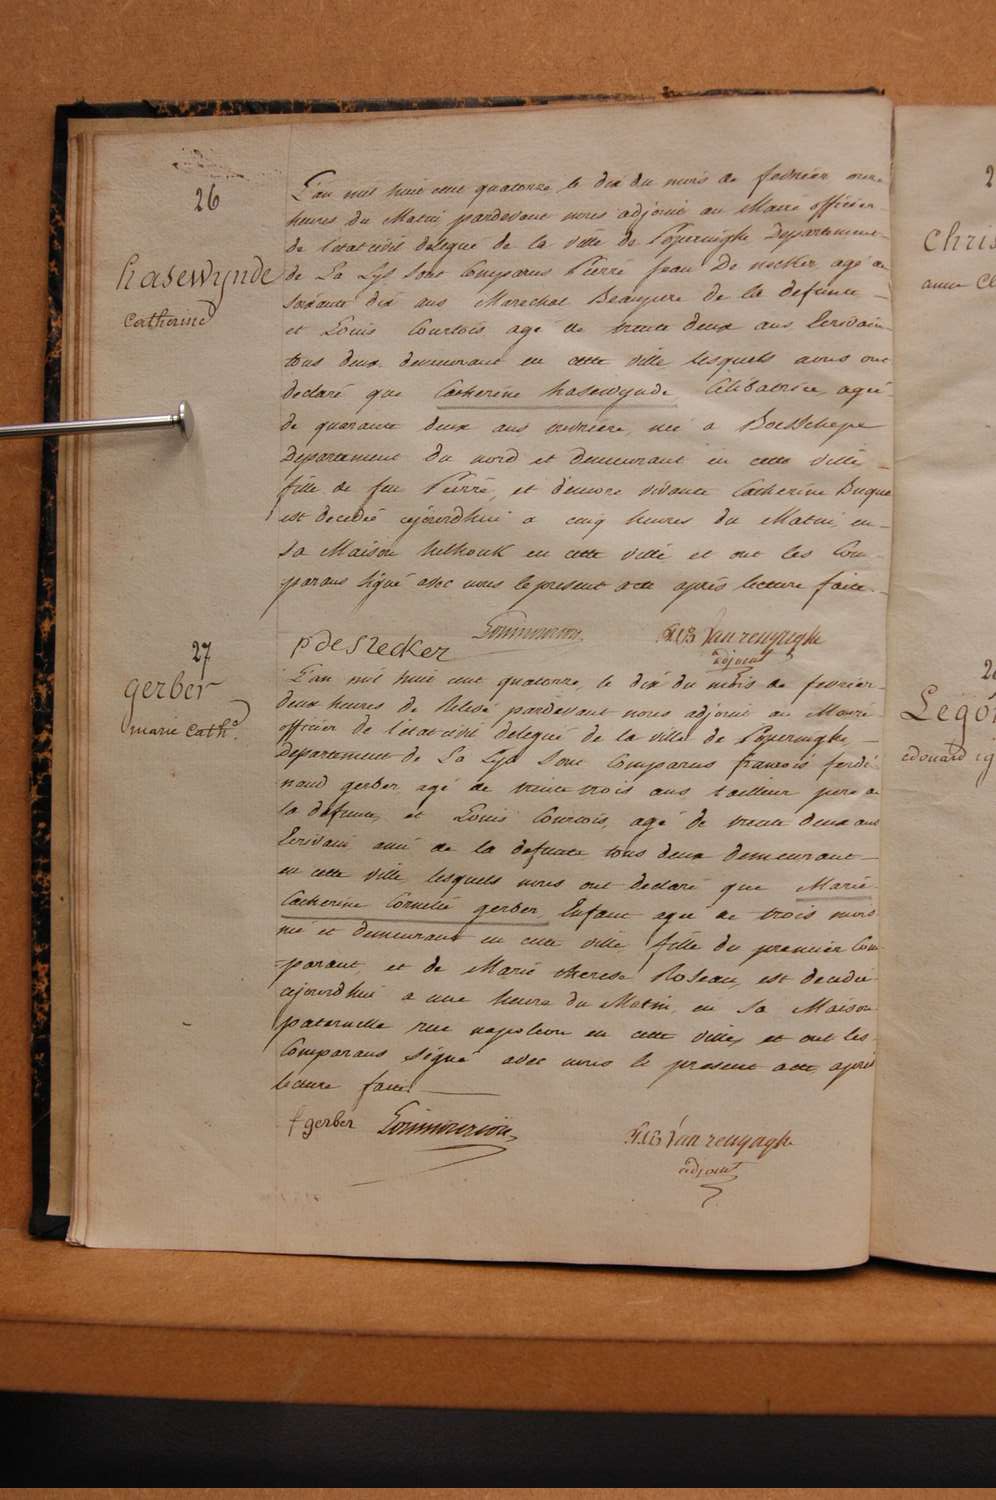 26
hasewynde
Catherine
L'an mil huit cent quatorze, le dix du mois de fevrier, onze
heures du Matin pardevant nous adjoint au Maire officier
de l'etat civil delegué de la ville de Poperinghe Departement
de La Lys sont Comparus Pierre Jean De necker, agé de
soixante dix ans Marechal Beaupere de la defunte
et Louis Courtois agé de trente deux ans Ecrivain
tous deux demeurant en cette ville lesquels nous ont
declaré que Catherine hasewynde, Célibatrice, agée
de quarante deux ans ouvriere, née a Boesschepe
Departement du nord et demeurant en cette ville
fille de feu Pierre, et d'encore vivante Catherine Duque
est decedée ajourdhui a cinq heures du Matin, en
sa Maison helhouk en cette ville et ont les Com-
parans signé avec nous le present acte après lecture faite.
p de Necker
Vanrenynghe
adjoint
27
gerber
marie Cath.e
L'an mil huit cent quatorze, le dix du mois de fevrier
deux heures de Relevé pardevant nous adjoint au Maire
officier de l'etat civil delegué de la ville de Poperinghe,
Departement de La Lys sont Comparus francois ferdi-
nand gerber, agé de trente trois ans tailleur pere de
la defunte, et Louis Courtois, agé de trente deux ans
Ecrivain ami de la defunte tous deux demeurant
en cette ville, lesquels nous ont declaré que Marie
Catherine Cornelie gerber, Enfant agée de trois mois
née et demeurant en cette ville, fille du premier Com-
parant, et de Marie therese Roseau, est decedée
ajourdhui a une heure du Matin, en sa Maison
paternelle rue napoleon en cette ville, et ont les
Comparans signé avec nous le present acte après
lecture faite.
f gerber
Vanrenynghe
adjoint
2
Chris
anne C
2
Legó
edouard ig